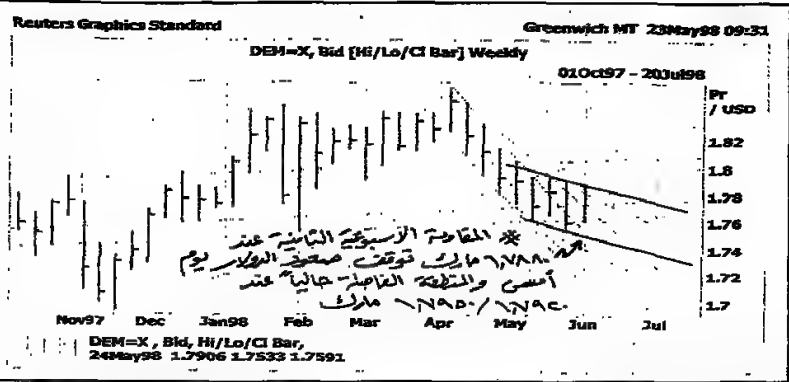 Reuters Graphics Standard
Greenwich MT 23May98 09:31
DEM=X, Bid [Hi/Lo/Cl Bar] Weekly
01Oct97 - 20Jul98
Pr
/ USD
1.82
1.8
1.78
1.76
1.74
1.72
1.7
* المقاومة الأسبوعية الثانية عند
١,٧٨٨٠ مارك توقف صعود الدولار يوم
أمس والمنطقة الفاصلة حالياً عند
١,٧٩٥٠/١,٧٩٢٠ مارك
Nov97 Dec Jan98 Feb Mar Apr May Jun Jul
DEM=X , Bid, Hi/Lo/Cl Bar,
24May98 1.7906 1.7533 1.7591